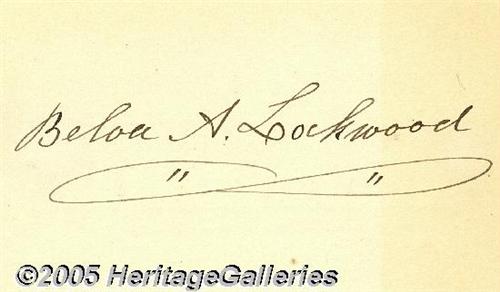 Belva A. Lockwood
" "
©2005 HeritageGalleries